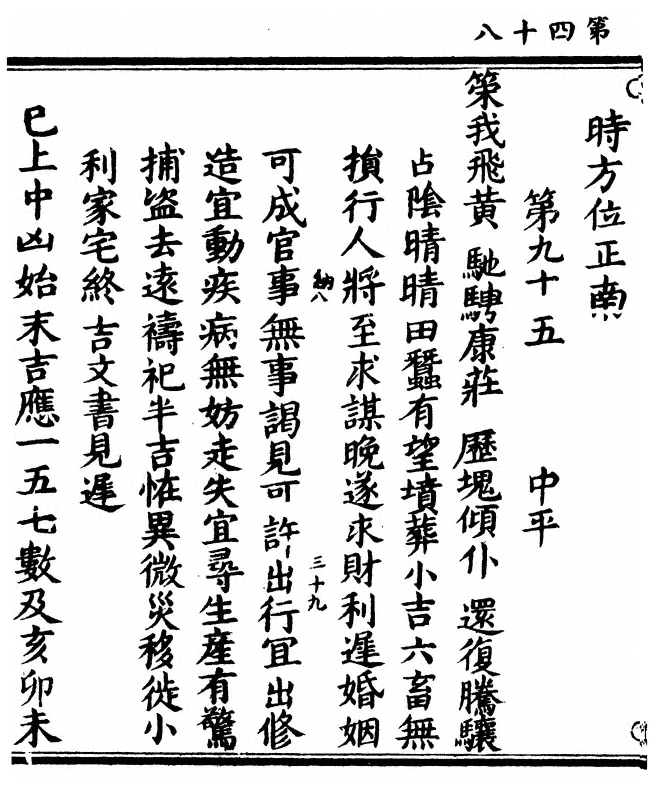 第四十八
時方位正南
第九十五 中平
策我飛黄 馳騁康莊 歷塊傾仆 還復騰驤
占陰晴晴田蠶有望墳葬小吉六畜無
損行人將至求謀晚遂求財利遲婚姻
納八
三十九
可成官事無事謁見可許出行宜出修
造宜動疾病無妨走失宜尋生産有驚
捕盜去遠禱祀半吉恠異微災移徙小
利家宅終吉文書見遲
巳上中凶始末吉應一五七數及亥卯未